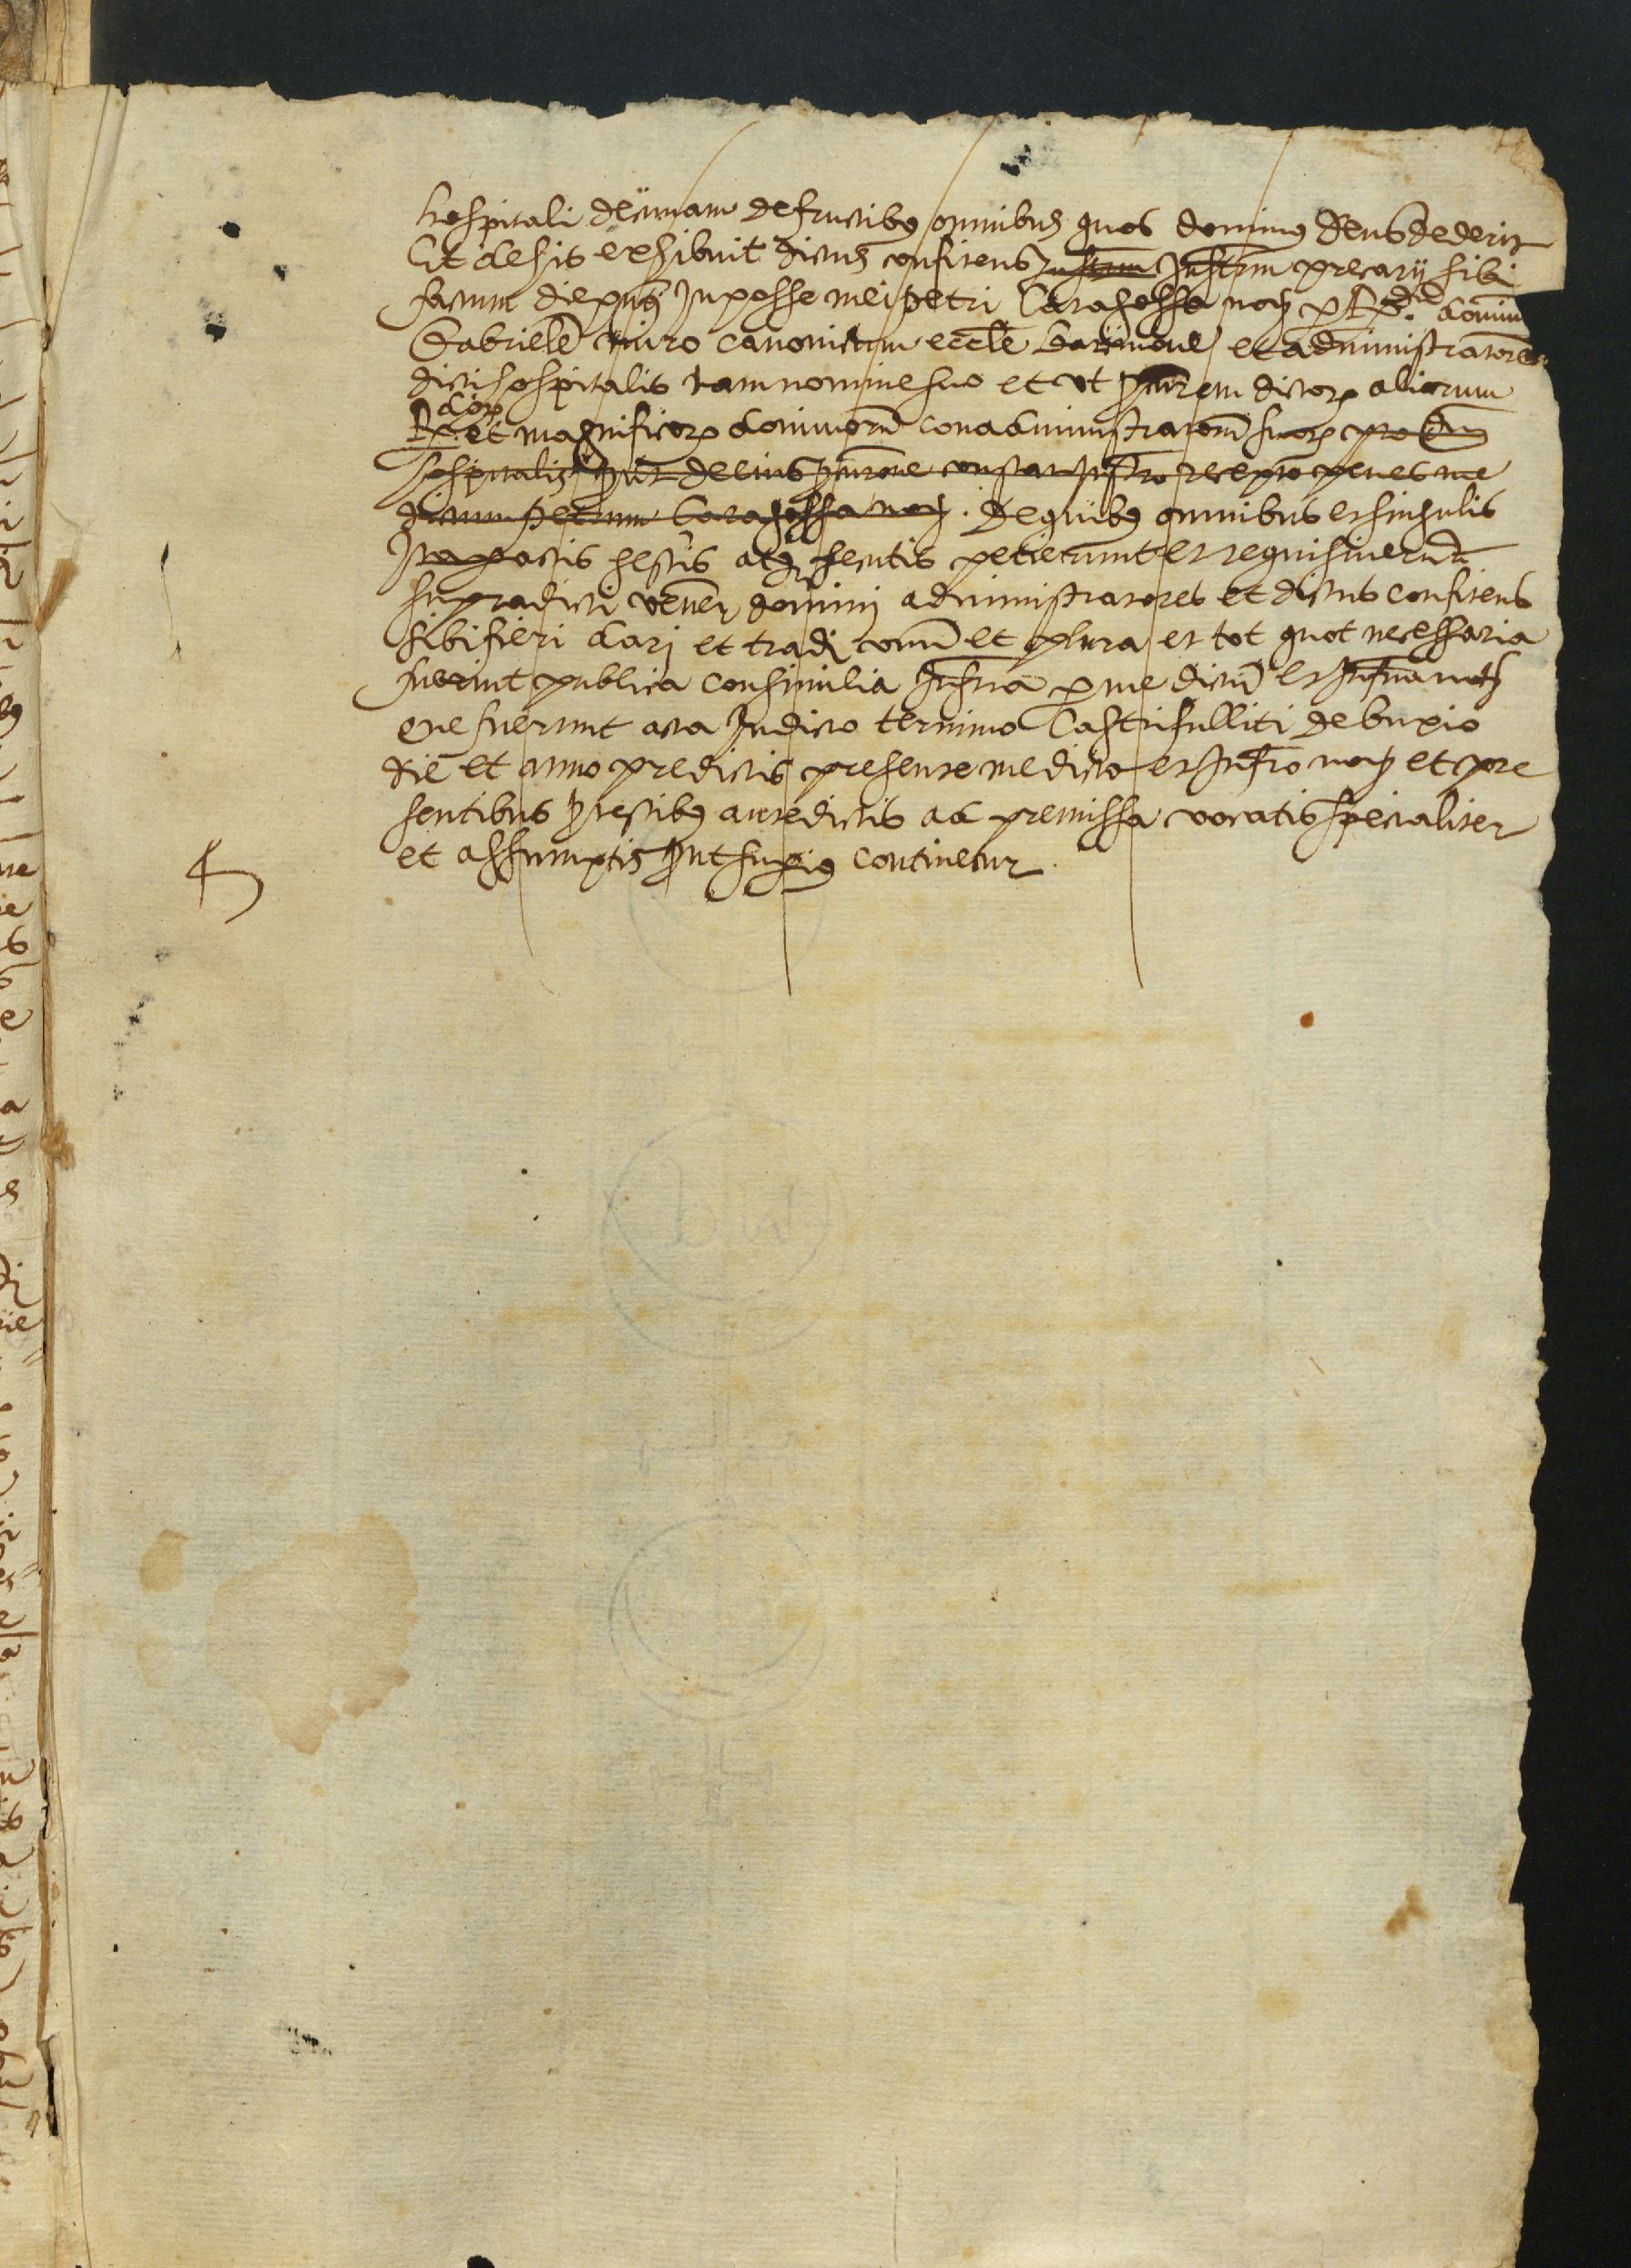 hospitali decimam de fructibus omnibus quos dominus deus dederit
Et de his exhibuit dictus confitens Instrum Instrum precarij sibi
factum die Inposse mei petri Caragossa not. p R.do domin
Gabriele miro canonicum eccle barcinone et administratorem
dicti hospitalis tam nomine suo et ut dictor. aliorum
R.dor. et magnificor. dominorum conadministratorum suor.
hospitalis prout de eius constat Instro recepto penes me
dictum petrum Caragossa not. De quibus omnibus et singulis
actis gestis atq. secutis petierunt et requisiverunt
supradicti vener. domini administratores et dictus confitens
sibi fieri darj et tradi et plura et tot quot necessaria
fuerint publica consimilia Instra p me dictum et Infra not.
que fuerunt acta Indicto termino Castrifulliti de buxio
die et anno predictis presente me dicto et Infro not. et pre
sentibus p testibus antedictis ad premissa vocatis specialiter
et assumptis prout superius continetur.